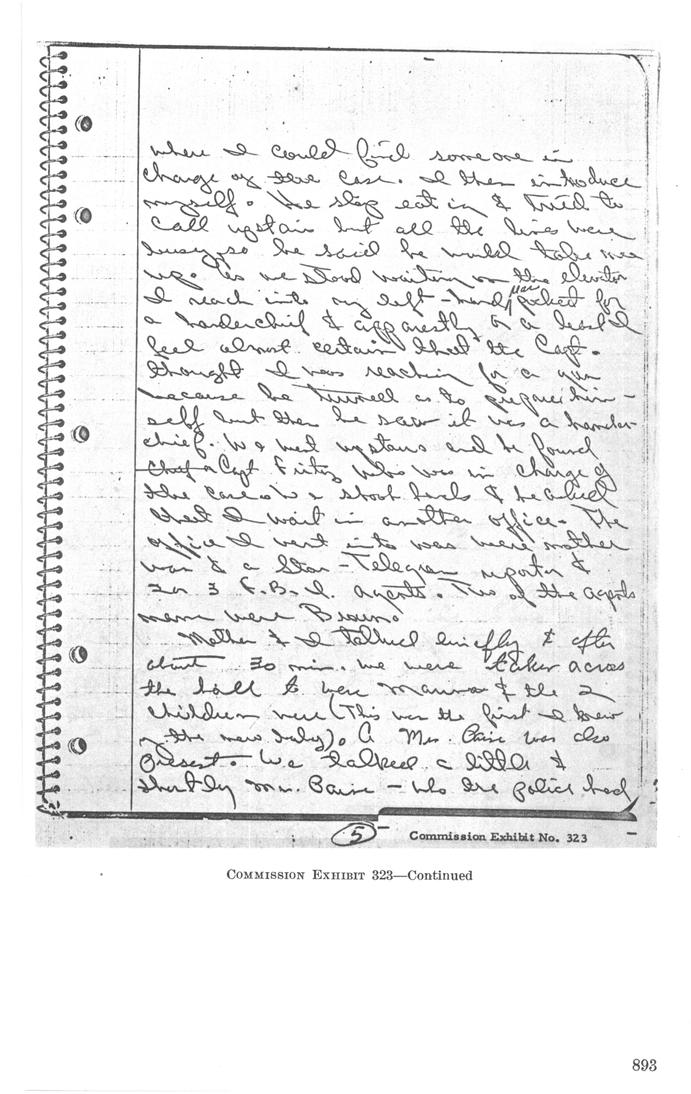 where I could find someone in
charge of the case. I then introduce
myself. He stop eating & tried to
call upstair but all the lines were
busy so he said he would take me
up. As we stood waiting on the elevator
I reach into my left-hand pocket for
a handerchief & apparently I
feel almost certain that the Capt.
thought I was reaching for a gun
because he turned as to prepare him-
self but then he saw it was a hander-
chief. We went upstairs and he found
Chief Capt Fritz who was in charge of
the case. We shook hands & he asked
that I wait in another office. The
office I went into was were mother
was & a Star-Telegram reporter &
2 or 3 F.B.I. agents. Two of the agents
name were Brown.
Mother & I talked briefly & after
about 30 min. we were taken across
the hall to were Marina & the 2
children were (This was the first I knew
of the new baby). A Mrs. Paine was also
present. We talked a little &
shortly Mr. Paine - who the police had
5
Commission Exhibit No. 323
COMMISSION EXHIBIT 323—Continued
893